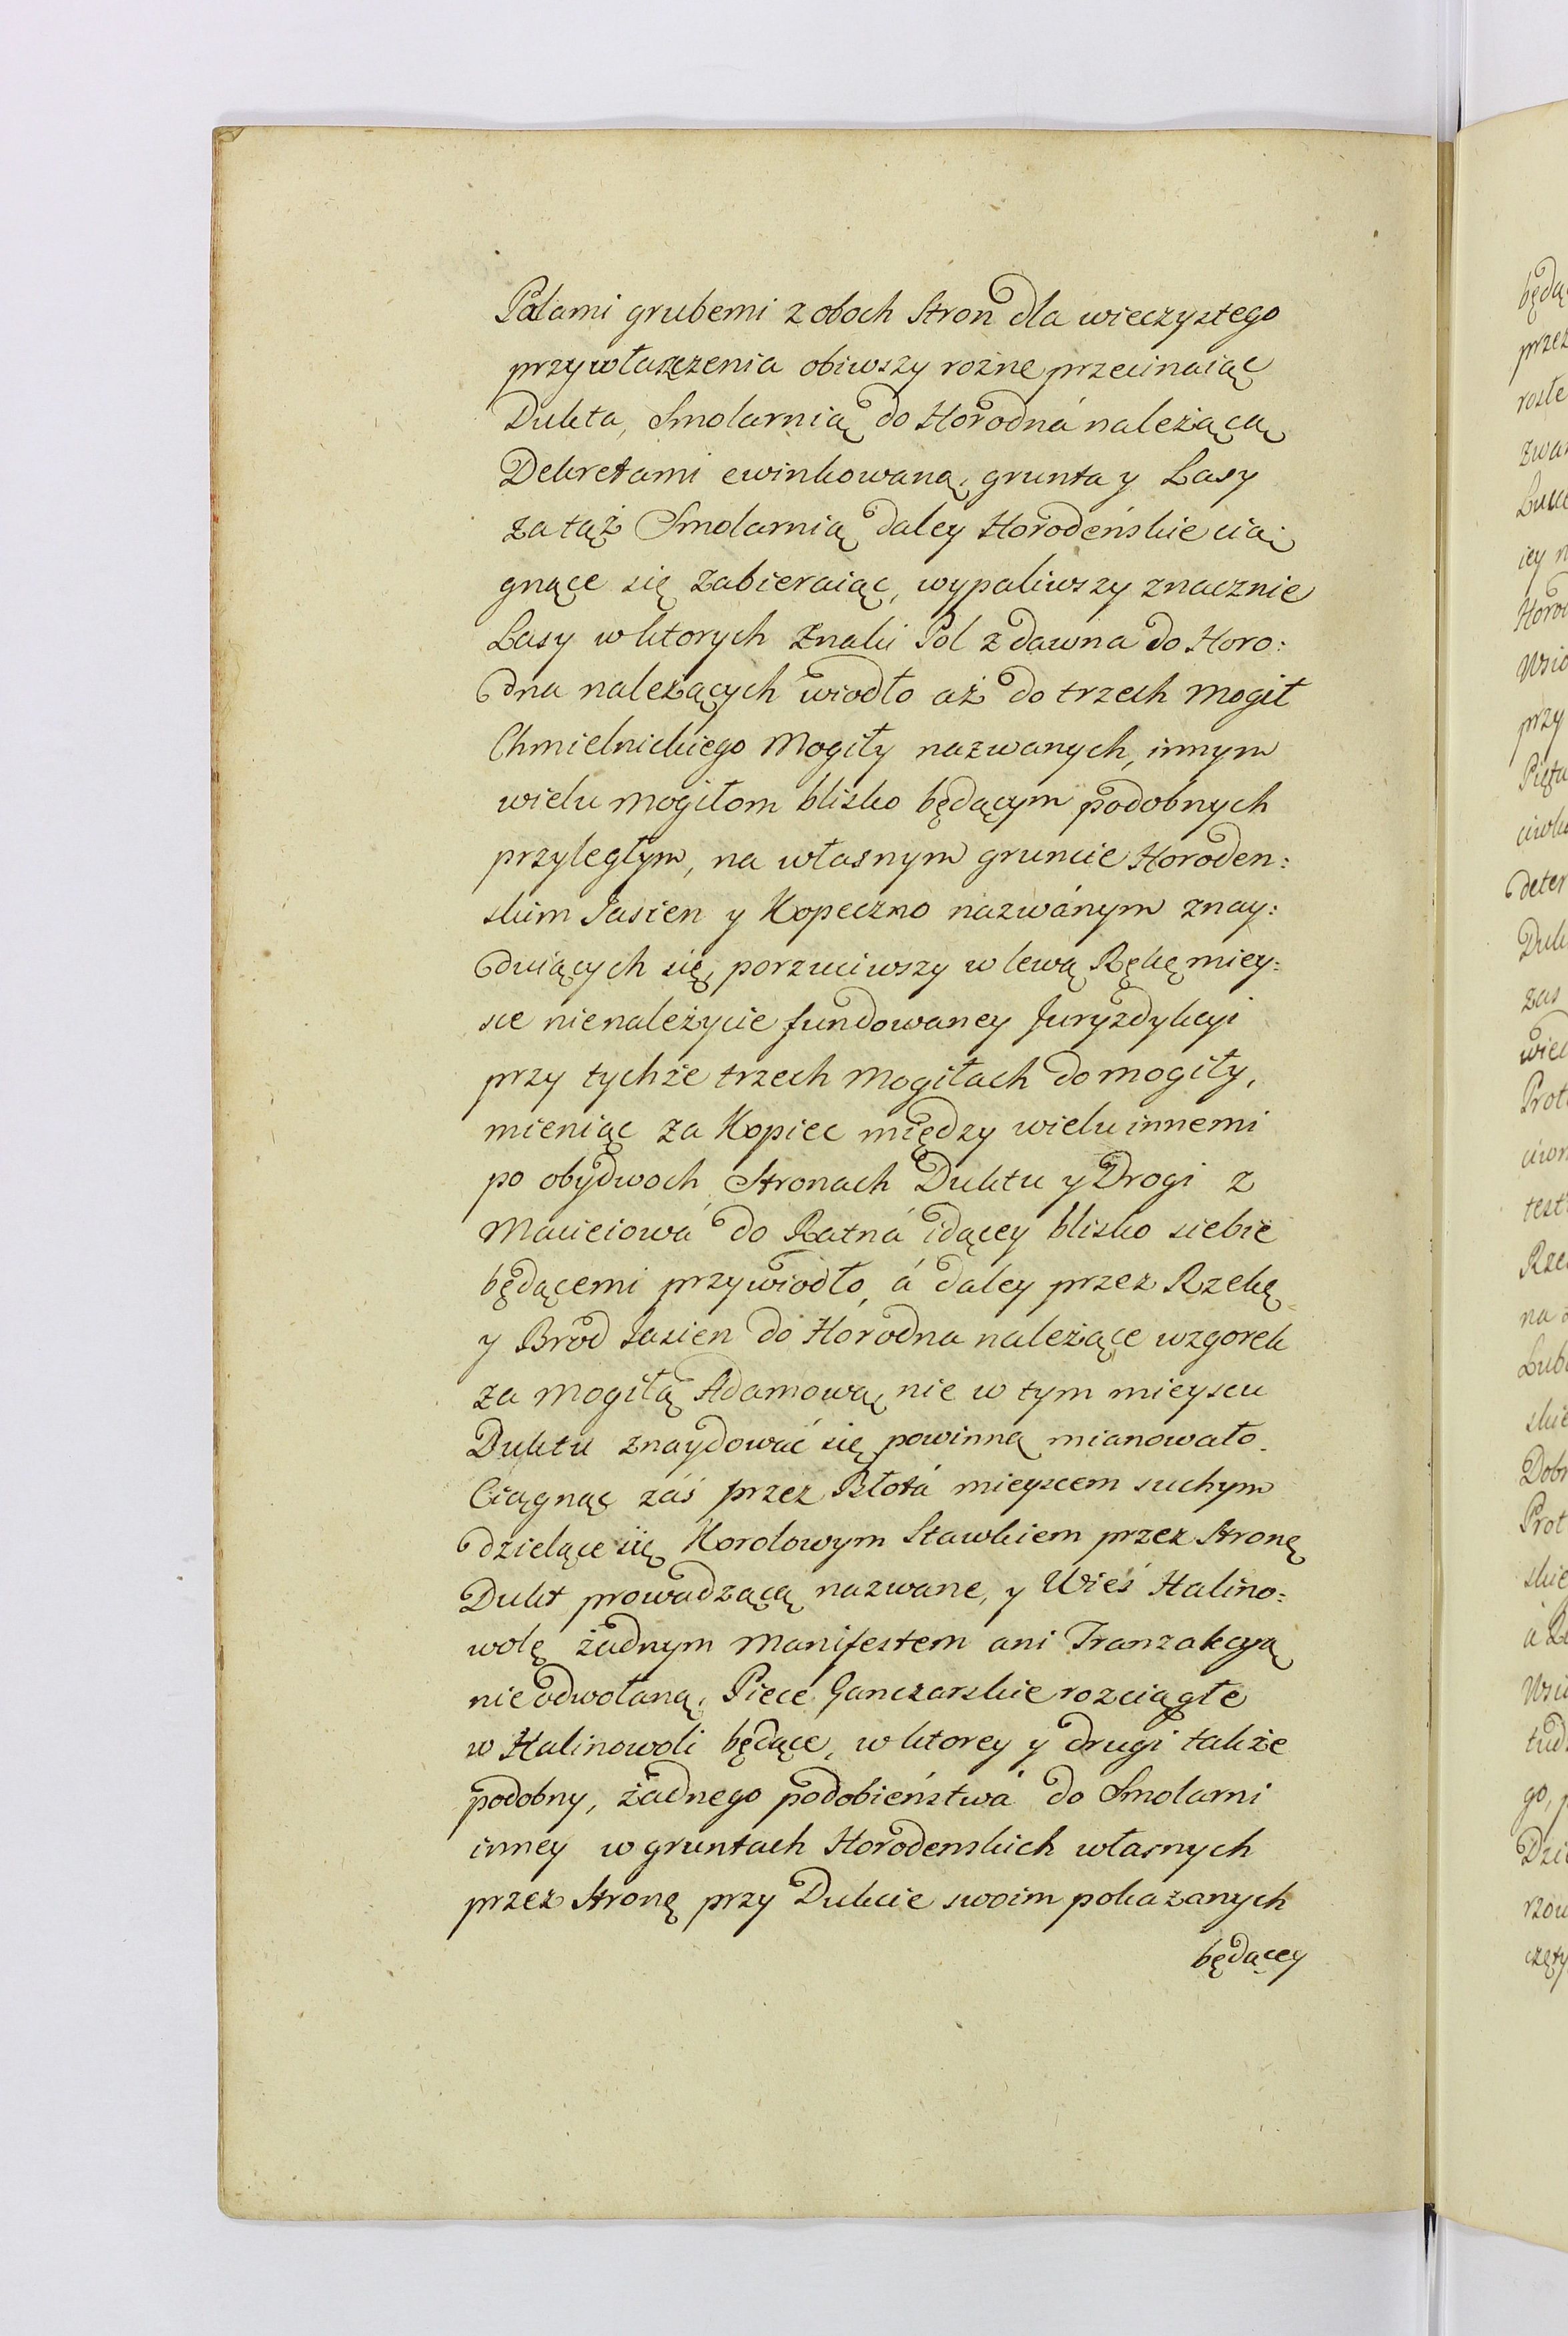 Palami grubemi z oboch Stron dla wieczystego
przywłaszczenia obiwszy rozne przecinaiąc
Dukta, Smolarnią do Horodná należącą
Dekretami ewinkowaną, grunta y Lasy
za tąż Smolarnią daley Horodeńskie cią:
gnące się zabieraiąc, wypaliwszy znacznie
Lasy w ktorych Znaki Pol z dawna do Horo:
dna należących wiodło aż do trzech Mogił
Chmielnickiego Mogiły nazwanych, innym
wielu mogiłom blisko będącym podobnych
przyległym, na własnym gruncie Horoden:
skim Jasien y Kopeczno nazwánym znay:
duiących się, porzuciwszy w lewą Rękę miey:
sce nienależycie fundowaney Juryzdykcyi
przy tychże trzech Mogiłach do mogiły,
mieniąc za Kopiec między wielu innemi
po obydwoch Stronach Duktu y Drogi z
Maciejowá do Ratná idącey blisko siebie
będącemi przywiodło, á daley przez Rzekę
y Brod Jasien do Horodna należące wzgorek
za Mogiłą Adamową nie w tym mieyscu
Duktu znaydować się powinną mianowało.
Ciągnąc záś przez Błotá mieyscem suchym
dzielące się Korolowym Stawkiem przez Stronę
Dukt prowadzącą nazwane, y Wieś Halino:
wolę żadnym Manifestem ani Tranzakcyą
nieodwołaną, Piece Ganczarskie rozciągłe
w Halinowoli będące, w ktorey y drugi także
podobny, żadnego podobieństwá do Smolarni
inney w gruntach Horodenskich własnych
przez Stronę przy Dukcie swoim pokazanych
będącey
będą
przez
Horo
przy
deter
Duk
zas
wiec
Prot
test
Rze
na
Lub
skie
Dobr
Prot
skie
go,